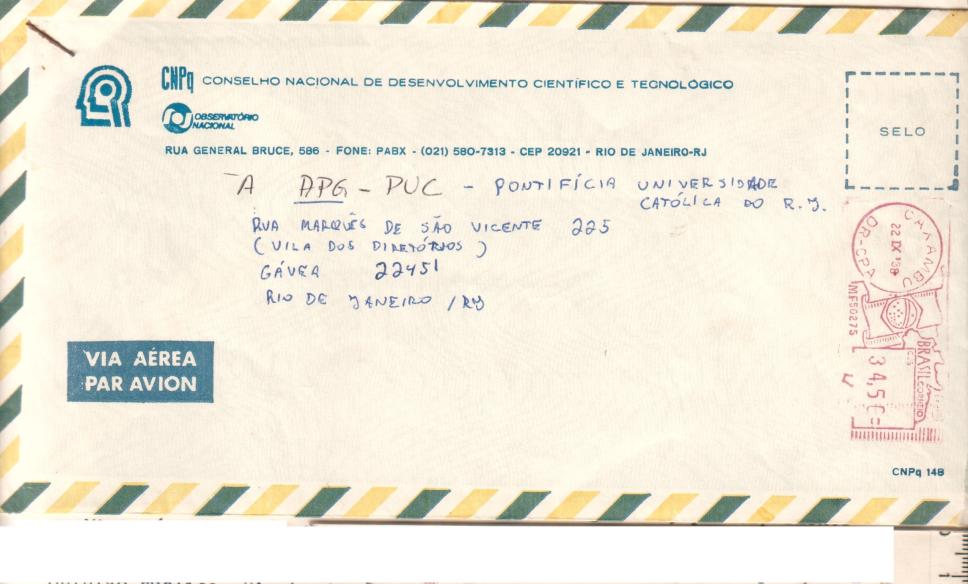 CNPq CONSELHO NACIONAL DE DESENVOLVIMENTO CIENTÍFICO E TECNOLÓGICO
OBSERVATÓRIO
NACIONAL
RUA GENERAL BRUCE, 586 - FONE: PABX - (021) 580-7313 - CEP 20921 - RIO DE JANEIRO-RJ
SELO
A APG - PUC - PONTIFÍCIA UNIVERSIDADE
CATÓLICA DO R.J.
RUA MARQUÊS DE SÃO VICENTE 225
(VILA DOS DIRETÓRIOS)
GÁVEA 22451
RIO DE JANEIRO / RJ
CAXAMBU
22 IX
DR-CPA
MF50275
BRASIL CORREIO
34,5
VIA AÉREA
PAR AVION
CNPq 148